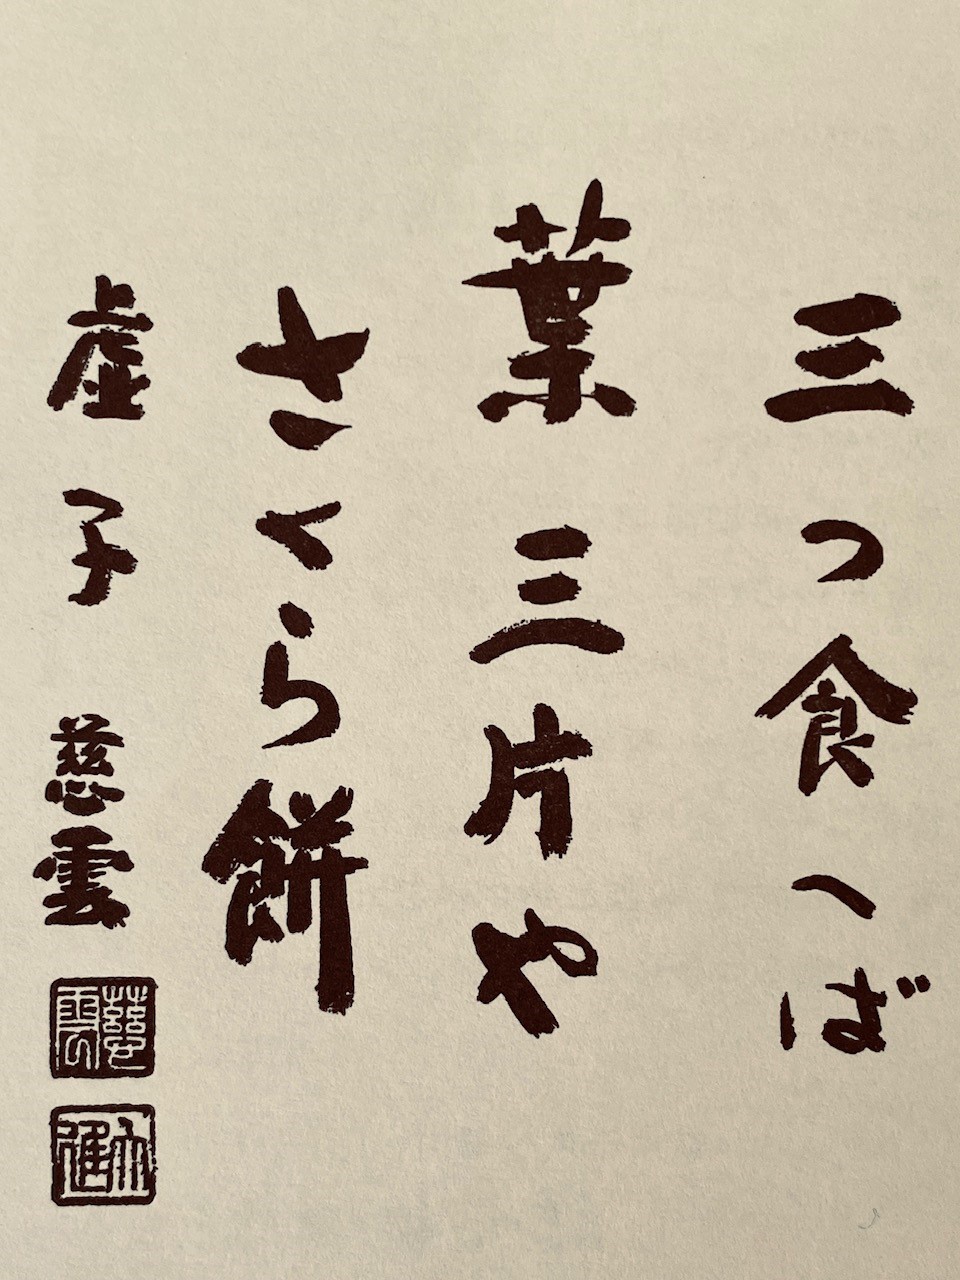 三つ食へば
葉三片や
さくら餅
虚子 慈雲
慈雲